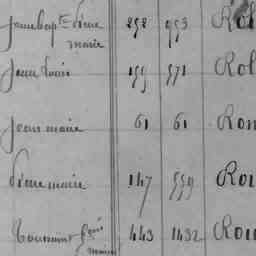 Jean bapte Pierre marie 292 993 Rol
Jean Louis 199 971 Rol
Jean marie 61 61 Ron
Pierre marie 147 559 Rou
Toussaint marie 443 1432 Rou